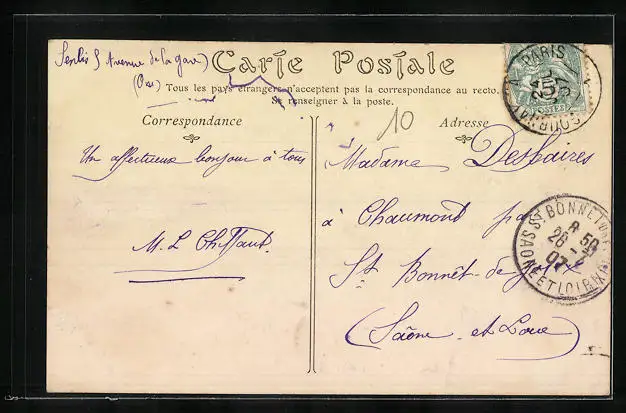 Senlis 5 Avenue de la gare)
(Oise)
Carte Postale
Tous les pays étrangers n'acceptent pas la correspondance au recto.
Se renseigner à la poste.
Correspondance
Adresse
10
Un affectueux bonjour à tous
M. L
Madame Desbaires
à Chaumont par
St Bonnet-de-Joux
(Saône et Loire)
PARIS
5c
ST BONNET
8 50
26
07
SAONE ET LOIRE